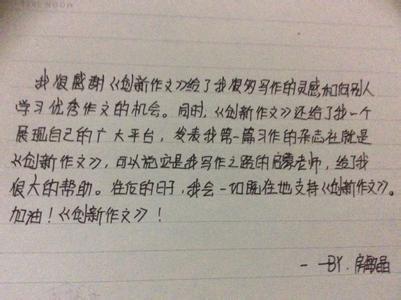 我很感谢《创新作文》给了我很多写作的灵感和向别人
学习优秀作文的机会。同时,《创新作文》还给了我一个
展现自己的广大平台,发表我第一篇习作的杂志社就是
《创新作文》,可以说它是我写作之路的启蒙老师,给了我
很大的帮助。在后的日子,我会一如既往地支持《创新作文》。
加油!《创新作文》!
——BY.